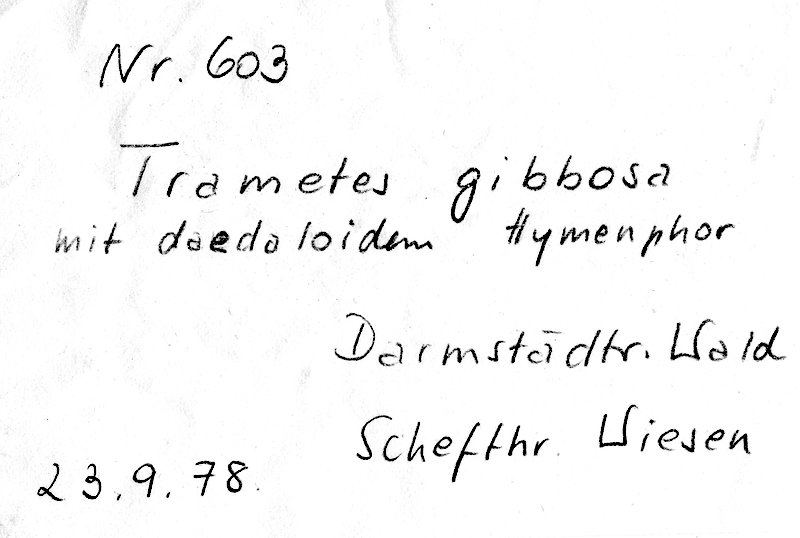 Nr. 603
Trametes gibbosa
mit daedaloidem Hymenphor
Darmstädtr. Wald
Schefthr. Wiesen
23.9.78.